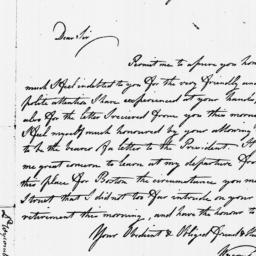 Dear Sir
Permit me to assure you how
much I feel indebted to you for the very friendly and
polite attention I have experienced at your hands,
also for the letter I received from you this morning
I feel myself much honoured by your allowing
to be the bearer of a letter to the President.
me great concern to learn at my departure from
this place for Boston the circumstance you me
I trust that I did not too far intrude on your
retirement this morning, and have the honour to
Your Obedient & Obliged friend &